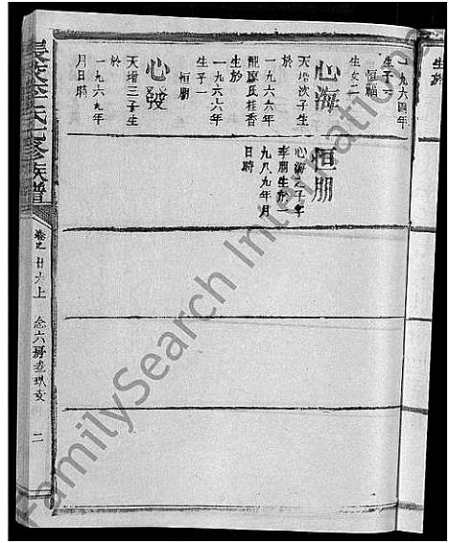 生於
一九六四年
生子一
恒輻
生女二
心海
天培次子生
於
一九六六年
龍廖氏桂香
生於
一九六六年
生子一
恒朋
心發
天增三子生
於
一九六九年
月日時
恒朋
心海之子字
李朋生於一
九八九年月
日時
氏七修族譜
卷之
廿六上
念六房
二
FamilySearch International